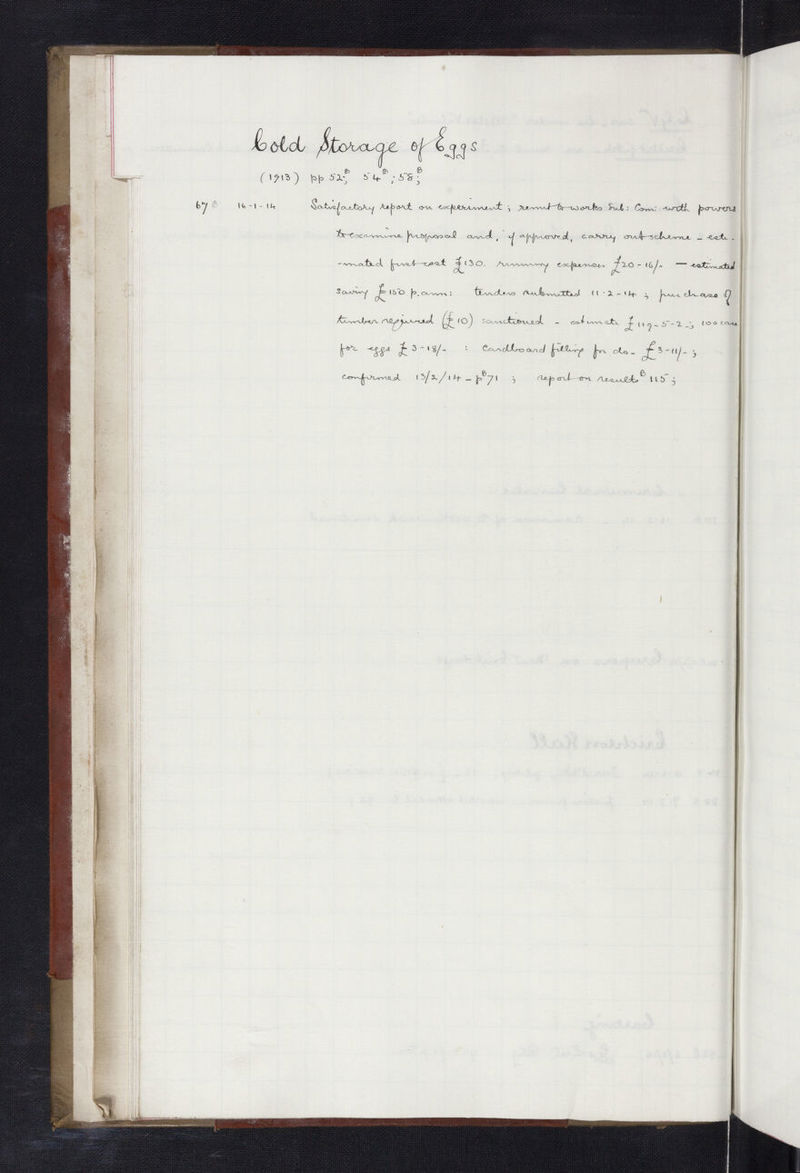 Cold Storage of Eggs
(1913) pp 52B; 54B; 58B;
67B 14-1-14 Satisfactory report on experiment; remit to works Sub: Com: with powers
to examine proposal and, if approved, carry out scheme - esti-
-mated first cost £130. running expenses £20-16/- — estimated
Saving £150 p.ann: tenders submitted 11-2-14; purchase of
timber required (£10) sanctioned - estimate £119-5-2-; 100
for eggs £3-18/- : Cardboard filling for do- £3-11/-;
confirmed 13/2/14 - pB71 ; report on resultsB 115;